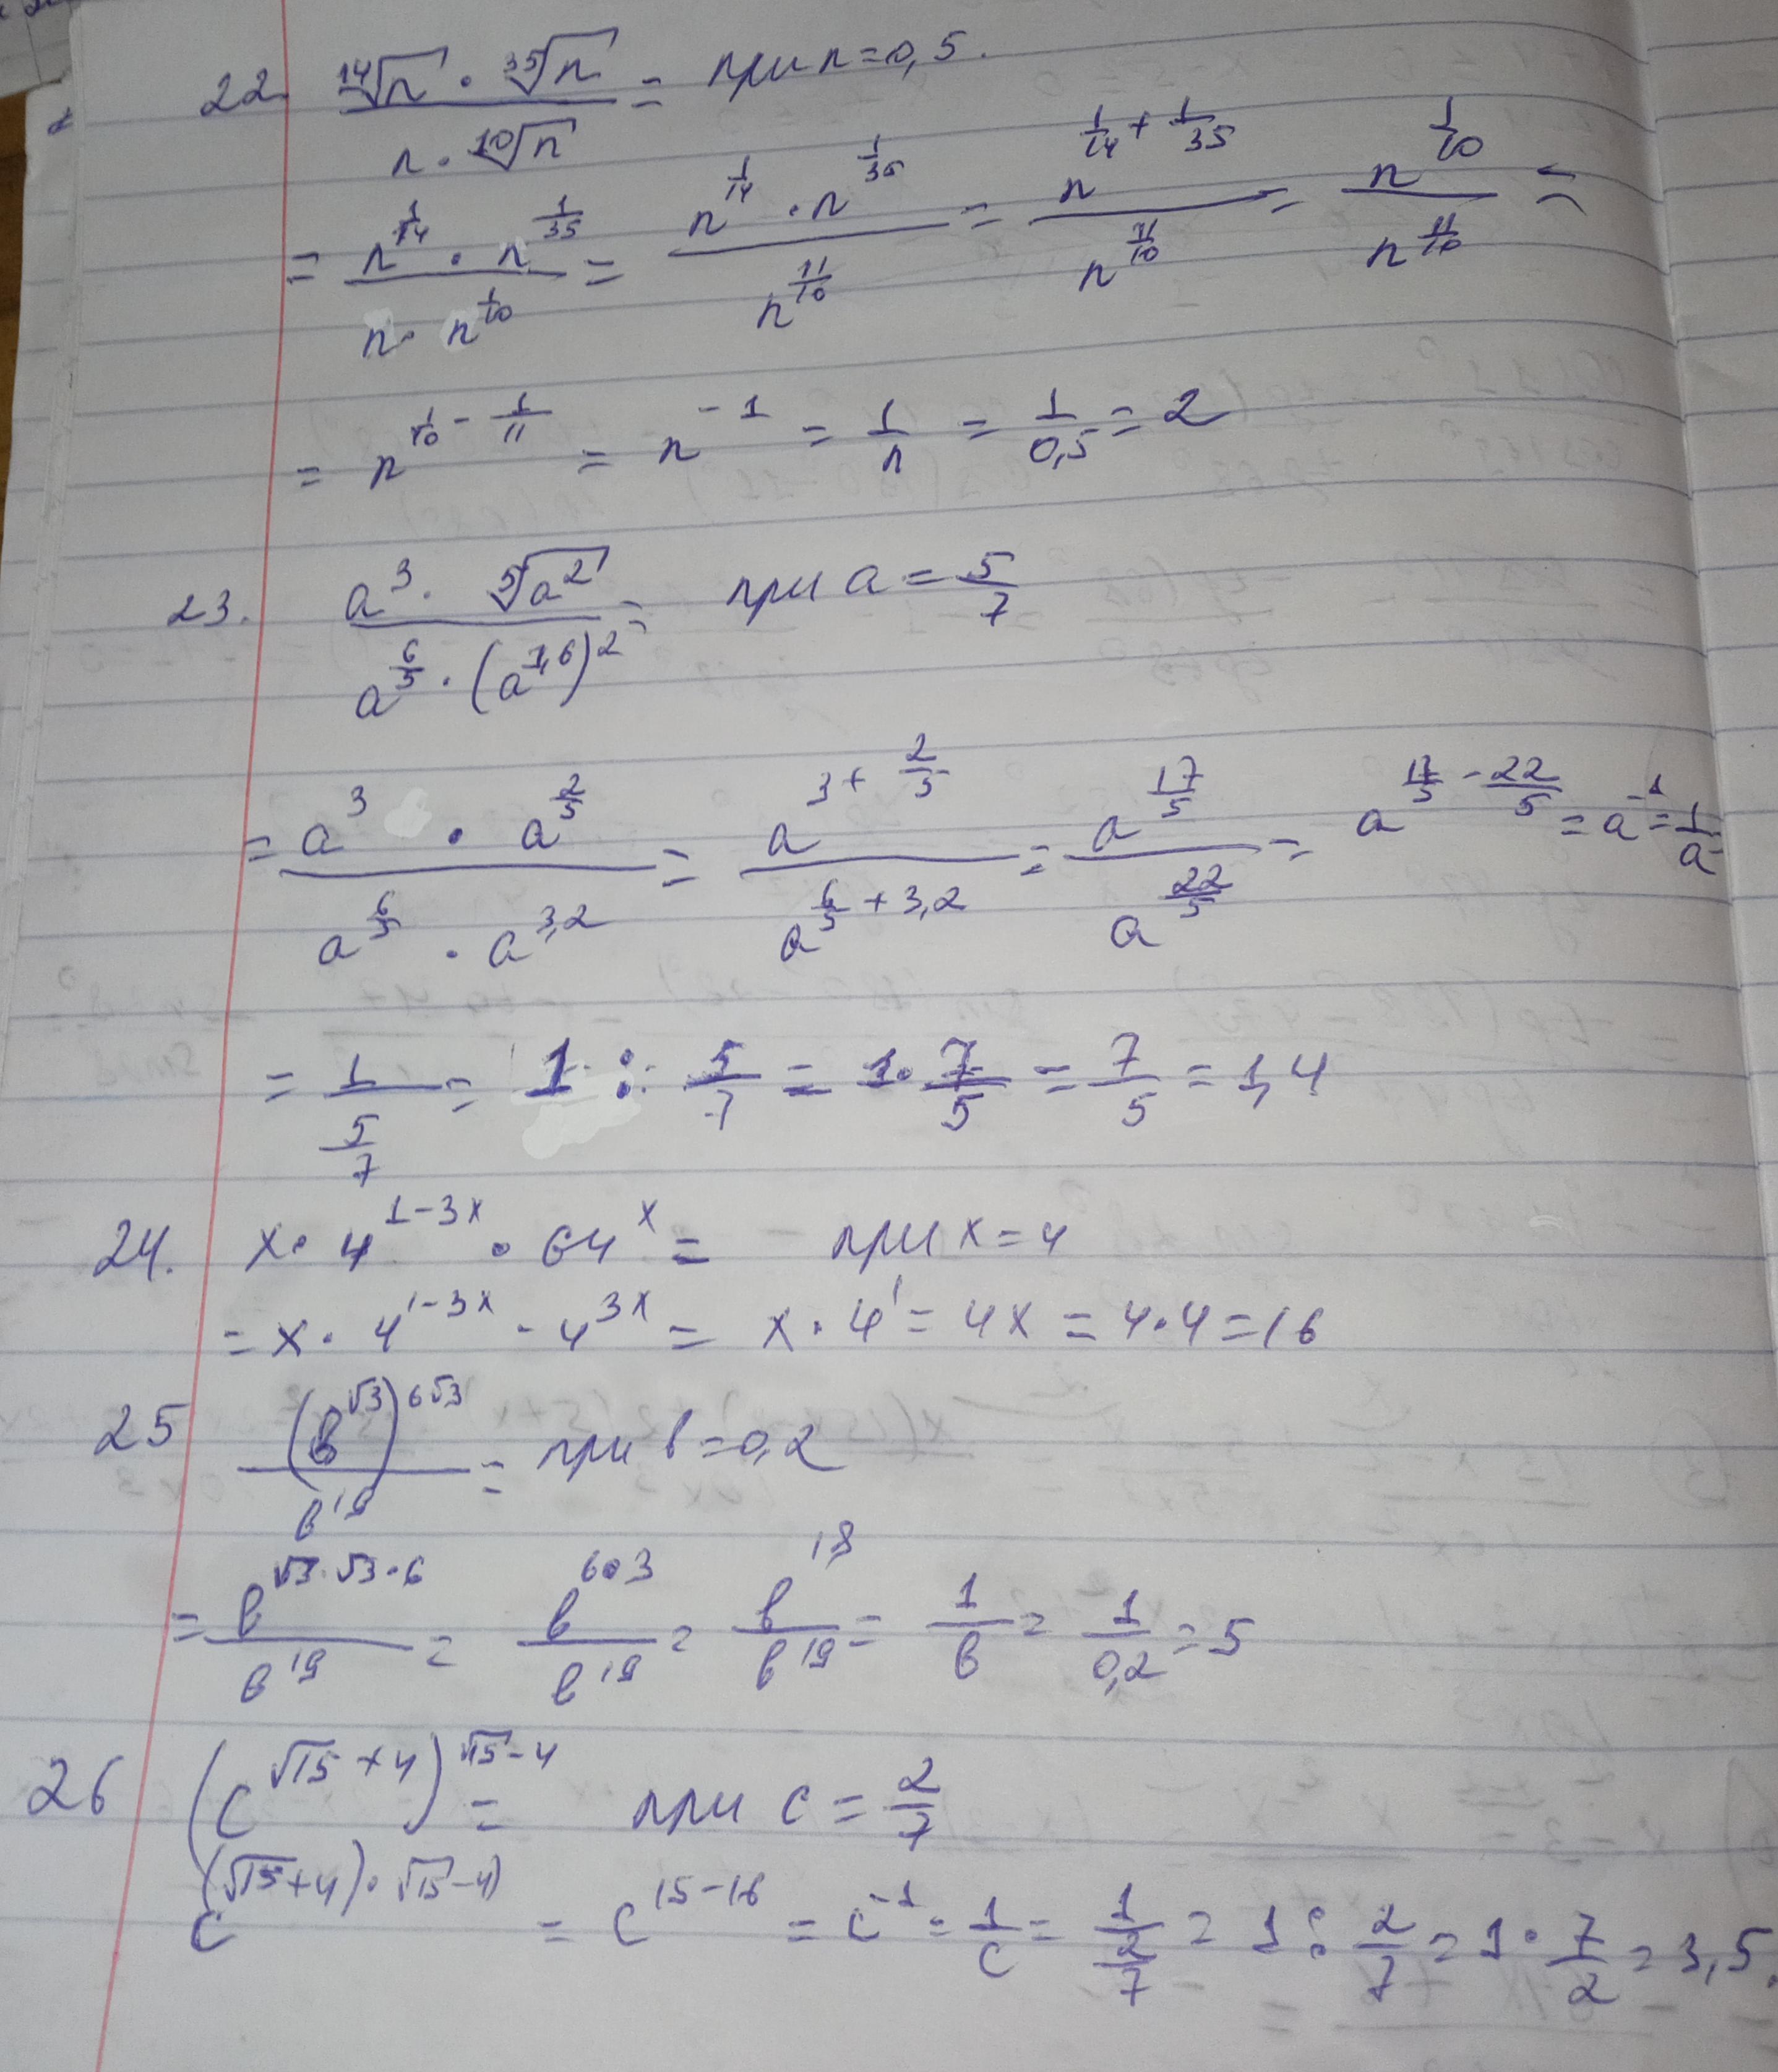 22. \frac{\sqrt[14]{n} \cdot \sqrt[35]{n}}{n \cdot \sqrt[10]{n}} = при n = 0,5.
= \frac{n^{\frac{1}{14}} \cdot n^{\frac{1}{35}}}{n \cdot n^{\frac{1}{10}}} = \frac{n^{\frac{1}{14}} \cdot n^{\frac{1}{35}}}{n^{\frac{11}{10}}} = \frac{n^{\frac{1}{14} + \frac{1}{35}}}{n^{\frac{11}{10}}} = \frac{n^{\frac{1}{10}}}{n^{\frac{11}{10}}} =
= n^{\frac{1}{10} - \frac{1}{11}} = n^{-1} = \frac{1}{n} = \frac{1}{0,5} = 2
23. \frac{a^3 \cdot \sqrt[5]{a^2}}{a^{\frac{6}{5}} \cdot (a^{1,6})^2} = при a = \frac{5}{7}
= \frac{a^3 \cdot a^{\frac{2}{5}}}{a^{\frac{6}{5}} \cdot a^{3,2}} = \frac{a^{3 + \frac{2}{5}}}{a^{\frac{6}{5} + 3,2}} = \frac{a^{\frac{17}{5}}}{a^{\frac{22}{5}}} = a^{\frac{17}{5} - \frac{22}{5}} = a^{-1} = \frac{1}{a}
= \frac{1}{\frac{5}{7}} = 1 : \frac{5}{7} = 1 \cdot \frac{7}{5} = \frac{7}{5} = 1,4
24. x \cdot 4^{1-3x} \cdot 64^x = при x = 4
= x \cdot 4^{1-3x} \cdot 4^{3x} = x \cdot 4^1 = 4x = 4 \cdot 4 = 16
25 \frac{(в^{\sqrt{3}})^{6\sqrt{3}}}{в^{19}} = при в = 0,2
= \frac{в^{\sqrt{3} \cdot \sqrt{3} \cdot 6}}{в^{19}} = \frac{в^{6 \cdot 3}}{в^{19}} = \frac{в^{18}}{в^{19}} = \frac{1}{в} = \frac{1}{0,2} = 5
26 (c^{\sqrt{15}+4})^{\sqrt{15}-4} = при c = \frac{2}{7}
c^{(\sqrt{15}+4) \cdot \sqrt{15}-4)} = c^{15-16} = c^{-1} = \frac{1}{c} = \frac{1}{\frac{2}{7}} = 1 : \frac{2}{7} = 1 \cdot \frac{7}{2} = 3,5.